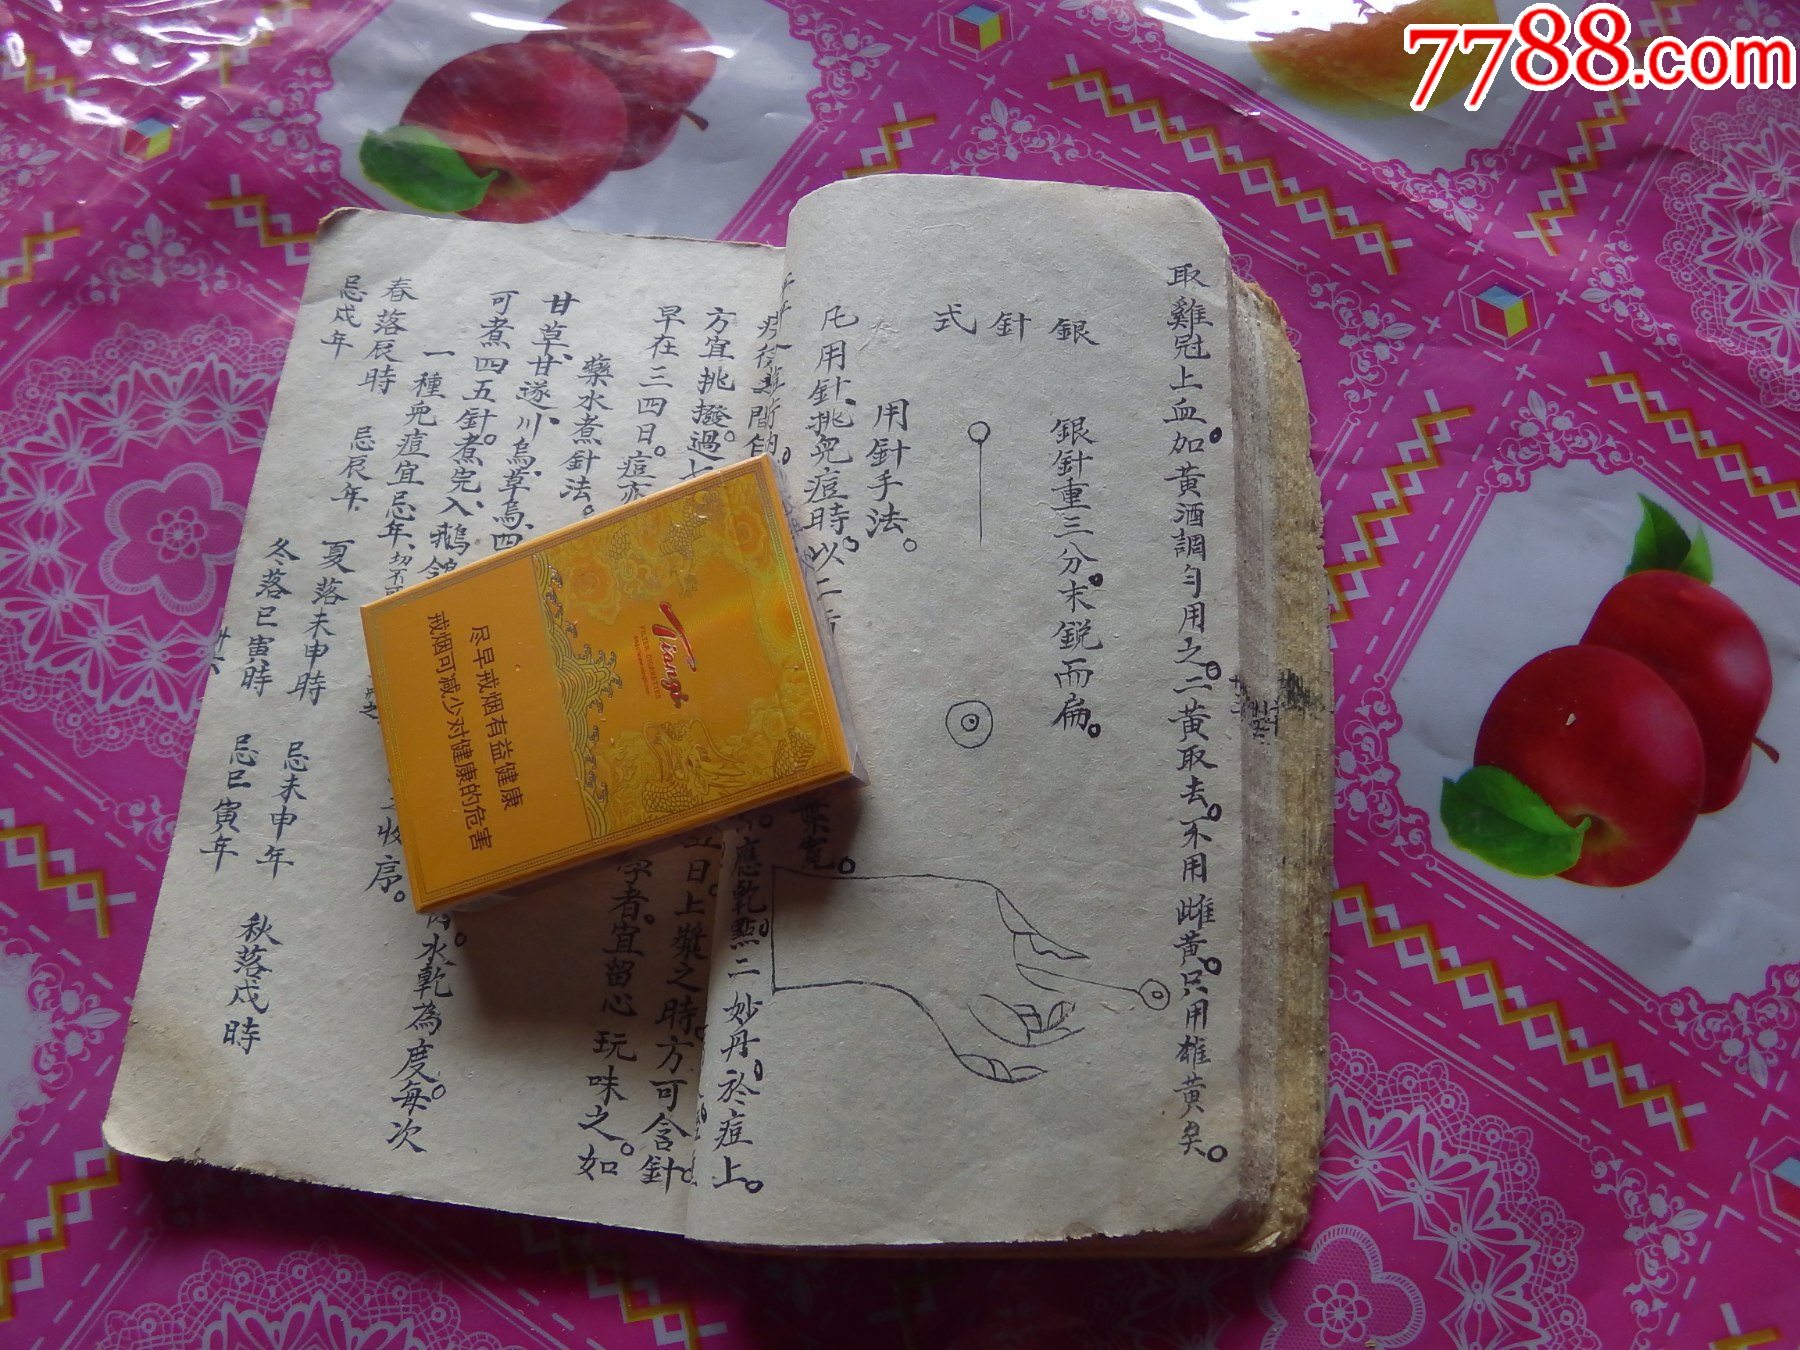 7788.com
取雞冠上血。加黃酒調勻用之。二黃取去。不用雌黃。只用雄黃矣。
銀針式
銀針重三分。末鋭而扁。
用針手法。
凡用針挑兒痘時。以二
葉寬。
應乾點。二妙丹。於痘上。
方宜挑撥過七
日。上漿之時。方可含針。
早在三四日。痘亦
學者。宜留心玩味之。如
藥水煮針法。
甘草、甘遂、川烏、草烏、四
可煮四五針。煮完、入鵝
水乾為度。每次
一種兒痘宜忌年、切不
收序。
春落辰時 忌辰年
夏落未申時 忌未申年
秋落戌時
忌戌年
冬落巳寅時 忌巳寅年
Tiangzi
FILTER CIGARETTES
尽早戒烟有益健康
戒烟可减少对健康的危害